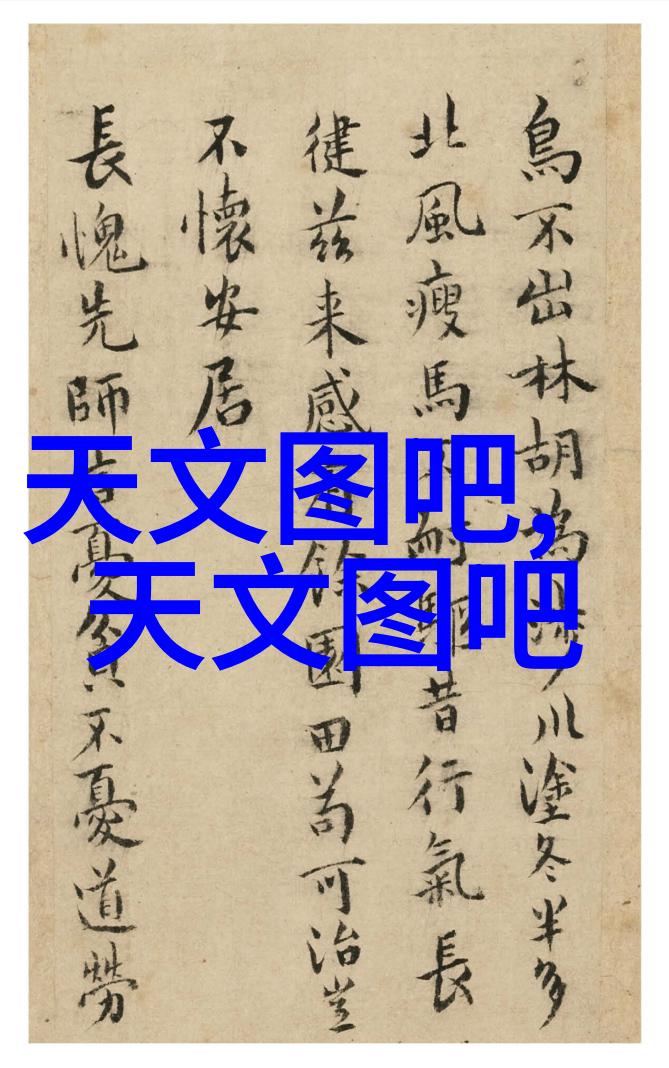 鳥不出林胡為川塗冬半多
北風瘦馬耐昔行氣長
徤茲来感餘園田苟可治豈
不懷安居
長愧先師言憂貧不憂道勞
天文图吧,
天文图吧